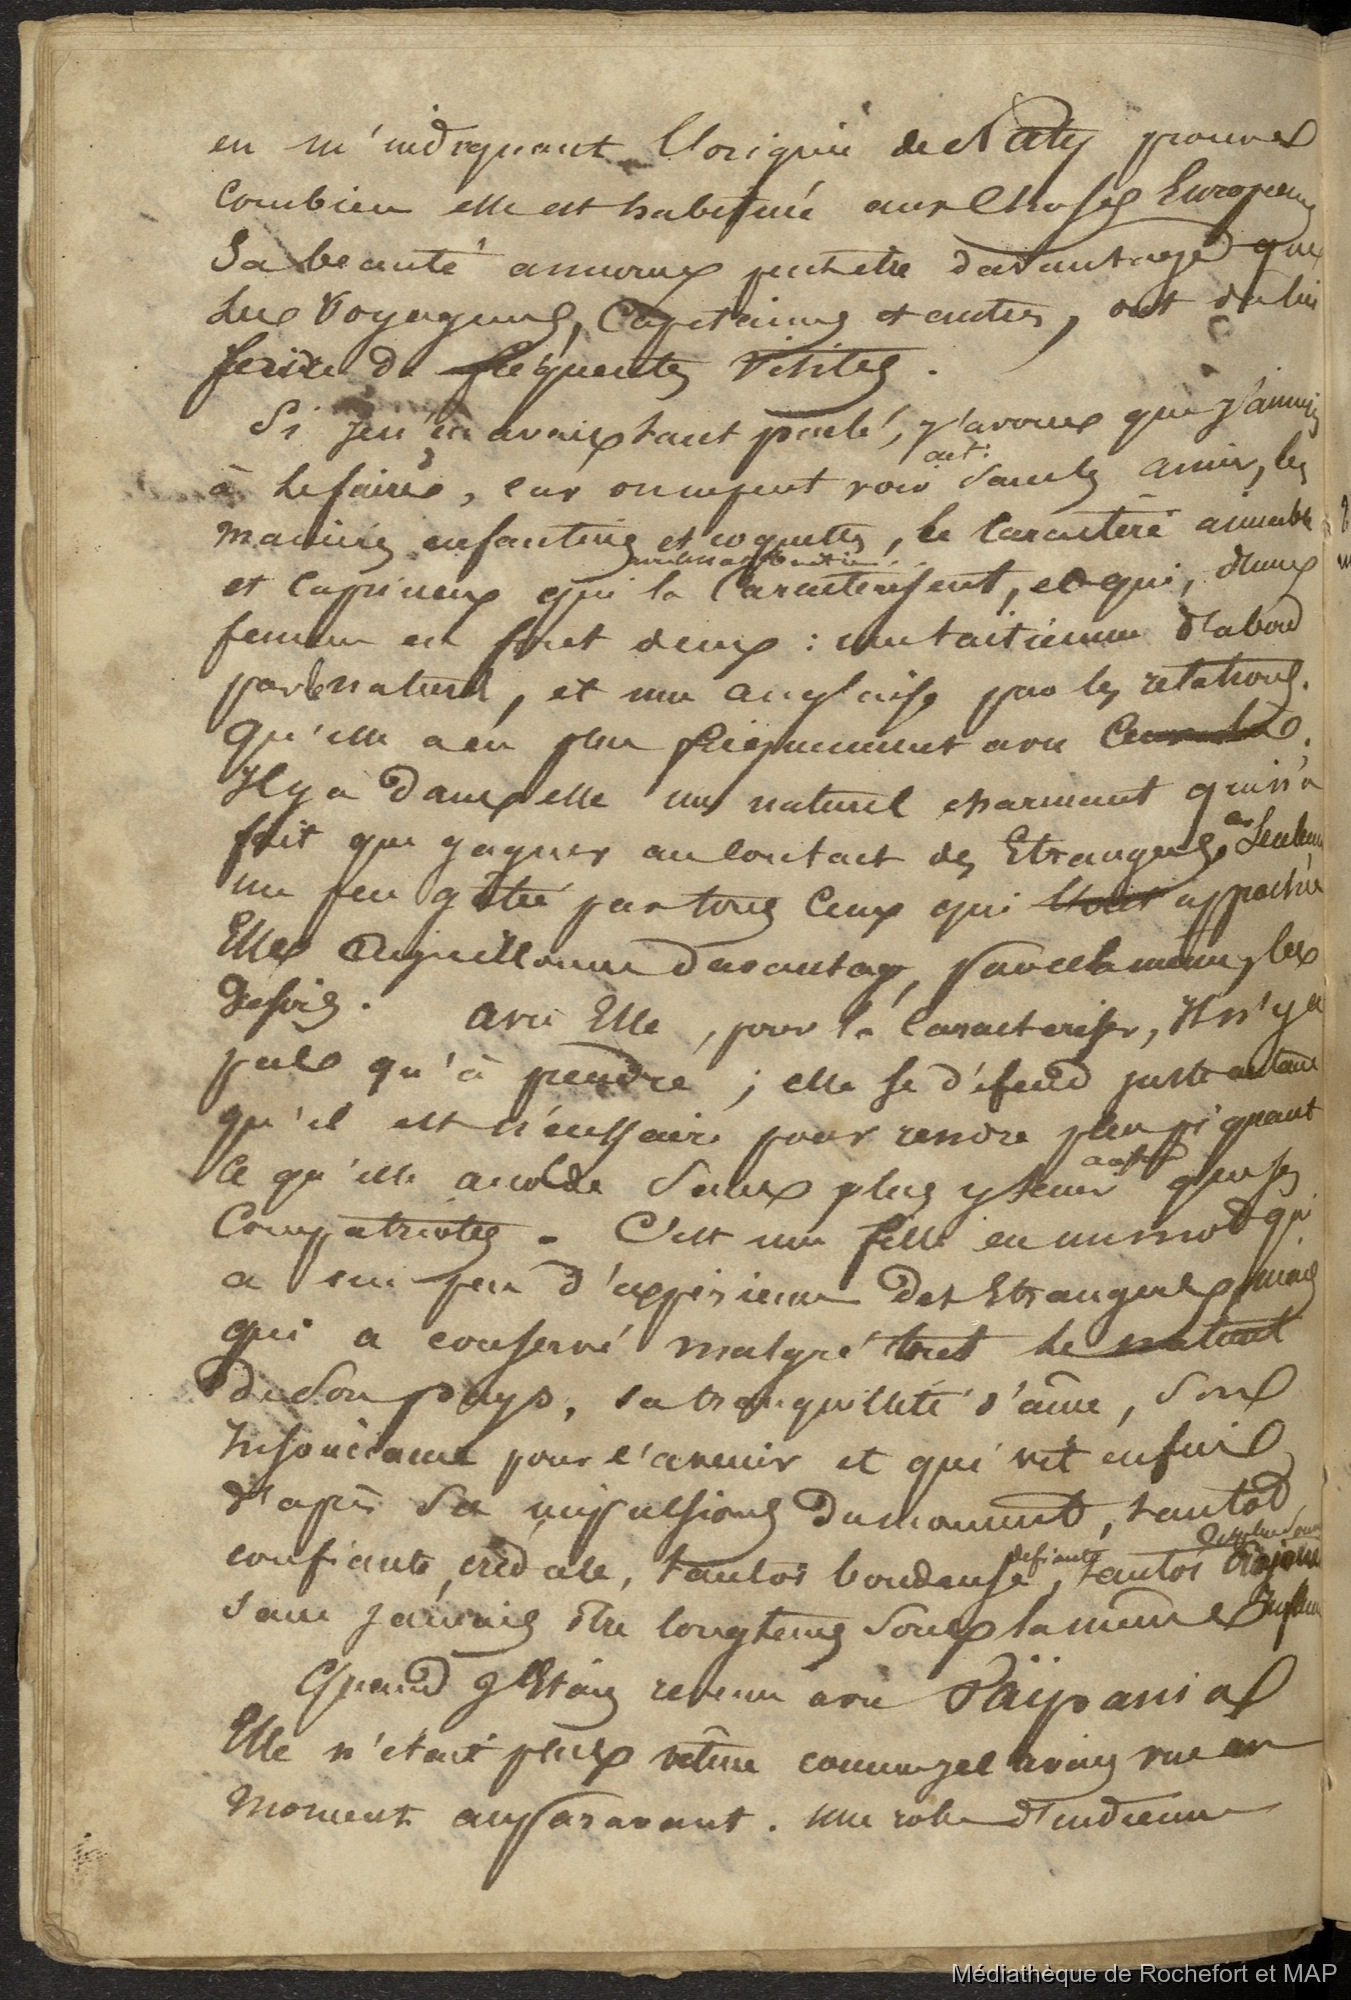 en m'indiquant l'origine de Naty prouve
combien elle est habituée aux choses Européens
Sa beauté annonce peut etre davantage que
les Voyageurs, Capitaines et autres, ont du lui
faire de fréquentes visites.
Si je n'en avais tant parlé, j'avoue que j'aimais
à le faire, car on ne peut voir sans les aimer, les
manières enfantines et coquettes, le caractère aimable
et capricieux qui la caractérisent, et qui, d'une
femme en font deux : une taitienne d'abord
par le naturel, et une anglaise par les relations
qu'elle a eu plus fréquemment avec
Il y a dans elle un naturel charmant qui n'a
fait que gagner au contact des Etrangers. Seulement
un peu gâtée par tous ceux qui l'ont approchée
Elle aiguillonne davantage, par cela même, les
desirs. Avec Elle, pour la caractériser, Il n'y a
pas qu'à prendre ; elle se défend juste autant
qu'il est nécessaire pour rendre plus piquant
ce qu'elle accorde sans plus y tenir que ses
Compatriotes. C'est une fille en un mot qui
a un peu d'expérience des Etrangers mais
qui a conservé malgré tout le naturel
de son pays, sa tranquillité d'âme, son
Insouciance pour l'avenir et qui vit enfin
d'après les impulsions du moment, tantot
confiante, crédule, tantot boudeuse, défiante, tantot
sans jamais être longtemps sous la même Influence
Quand j'Etais revenu avec Païpania
Elle n'était plus vêtue comme je l'avais vue un
moment auparavant. Une robe d'indienne
Médiathèque de Rochefort et MAP